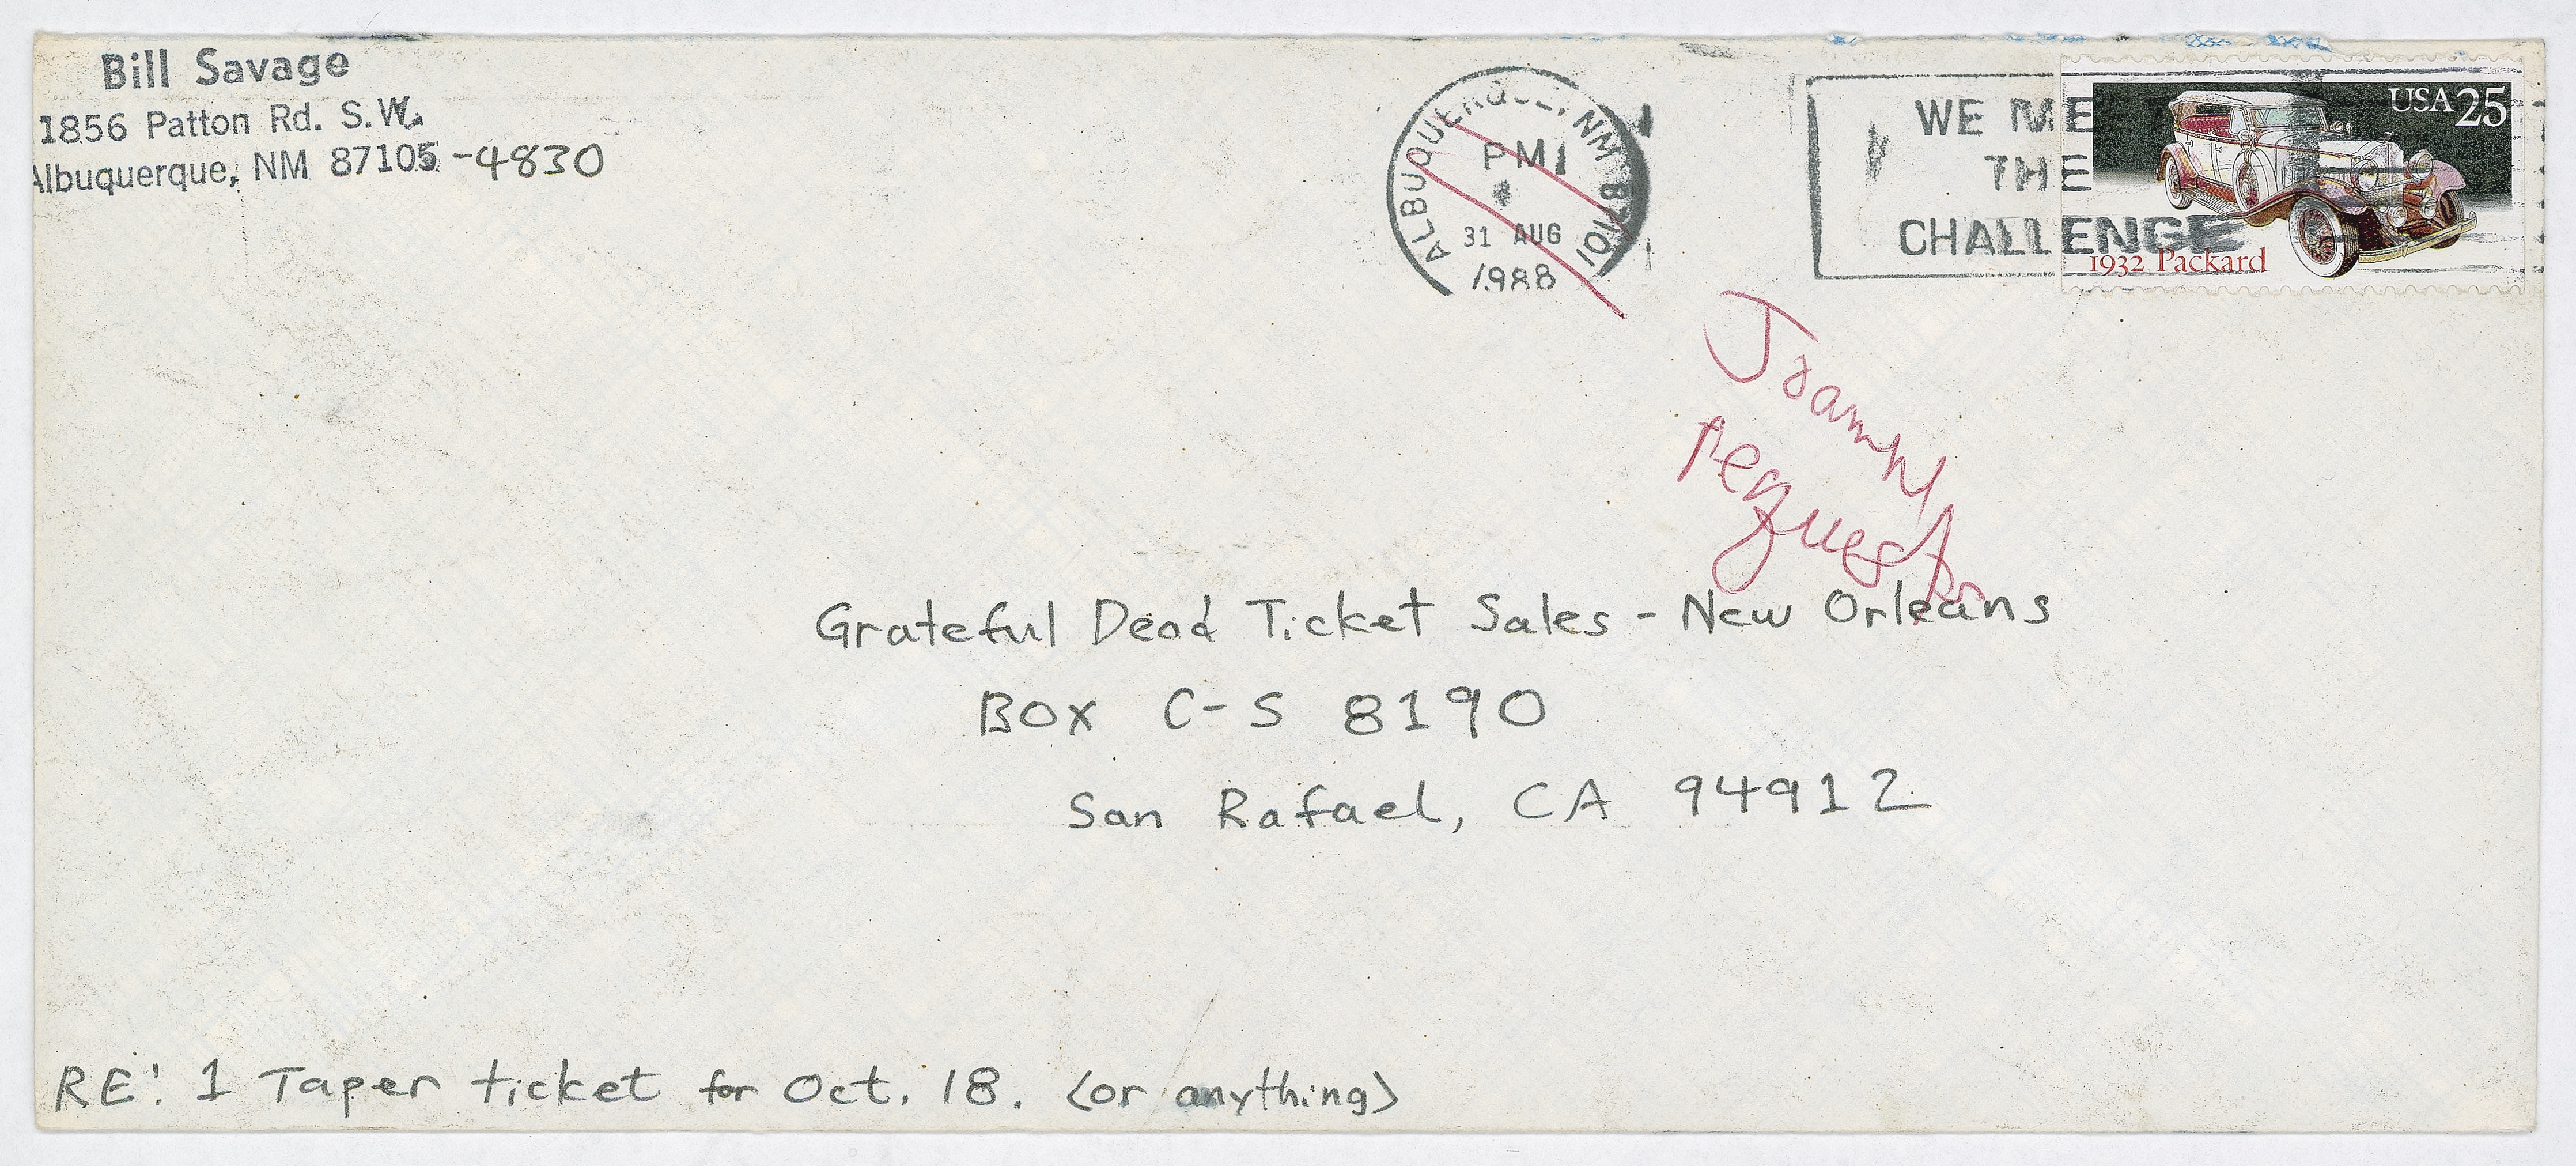 Bill Savage
1856 Patton Rd. S.W.
Albuquerque, NM 87105-4830
ALBUQUERQUE, NM 87101
PM
31 AUG
1988
WE ME
THE
CHALLENGE
USA 25
1932 Packard
request
Grateful Dead Ticket Sales - New Orleans
BOX C-S 8190
San Rafael, CA 94912
RE: 1 Taper ticket for Oct. 18. (or anything)